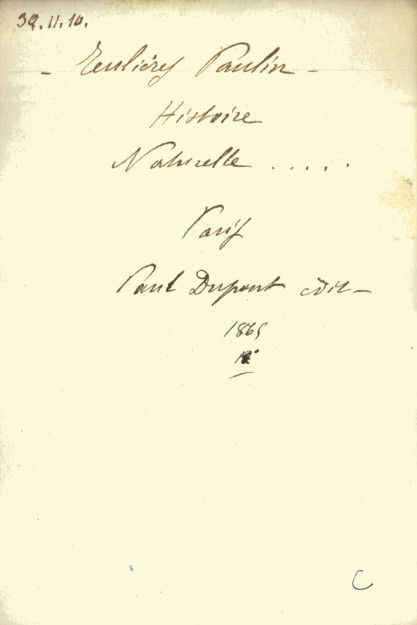 39.11.10.
- Teulières Paulin -
Histoire
Naturelle . . . . .
Paris
Paul Dupont edit -
1865
C